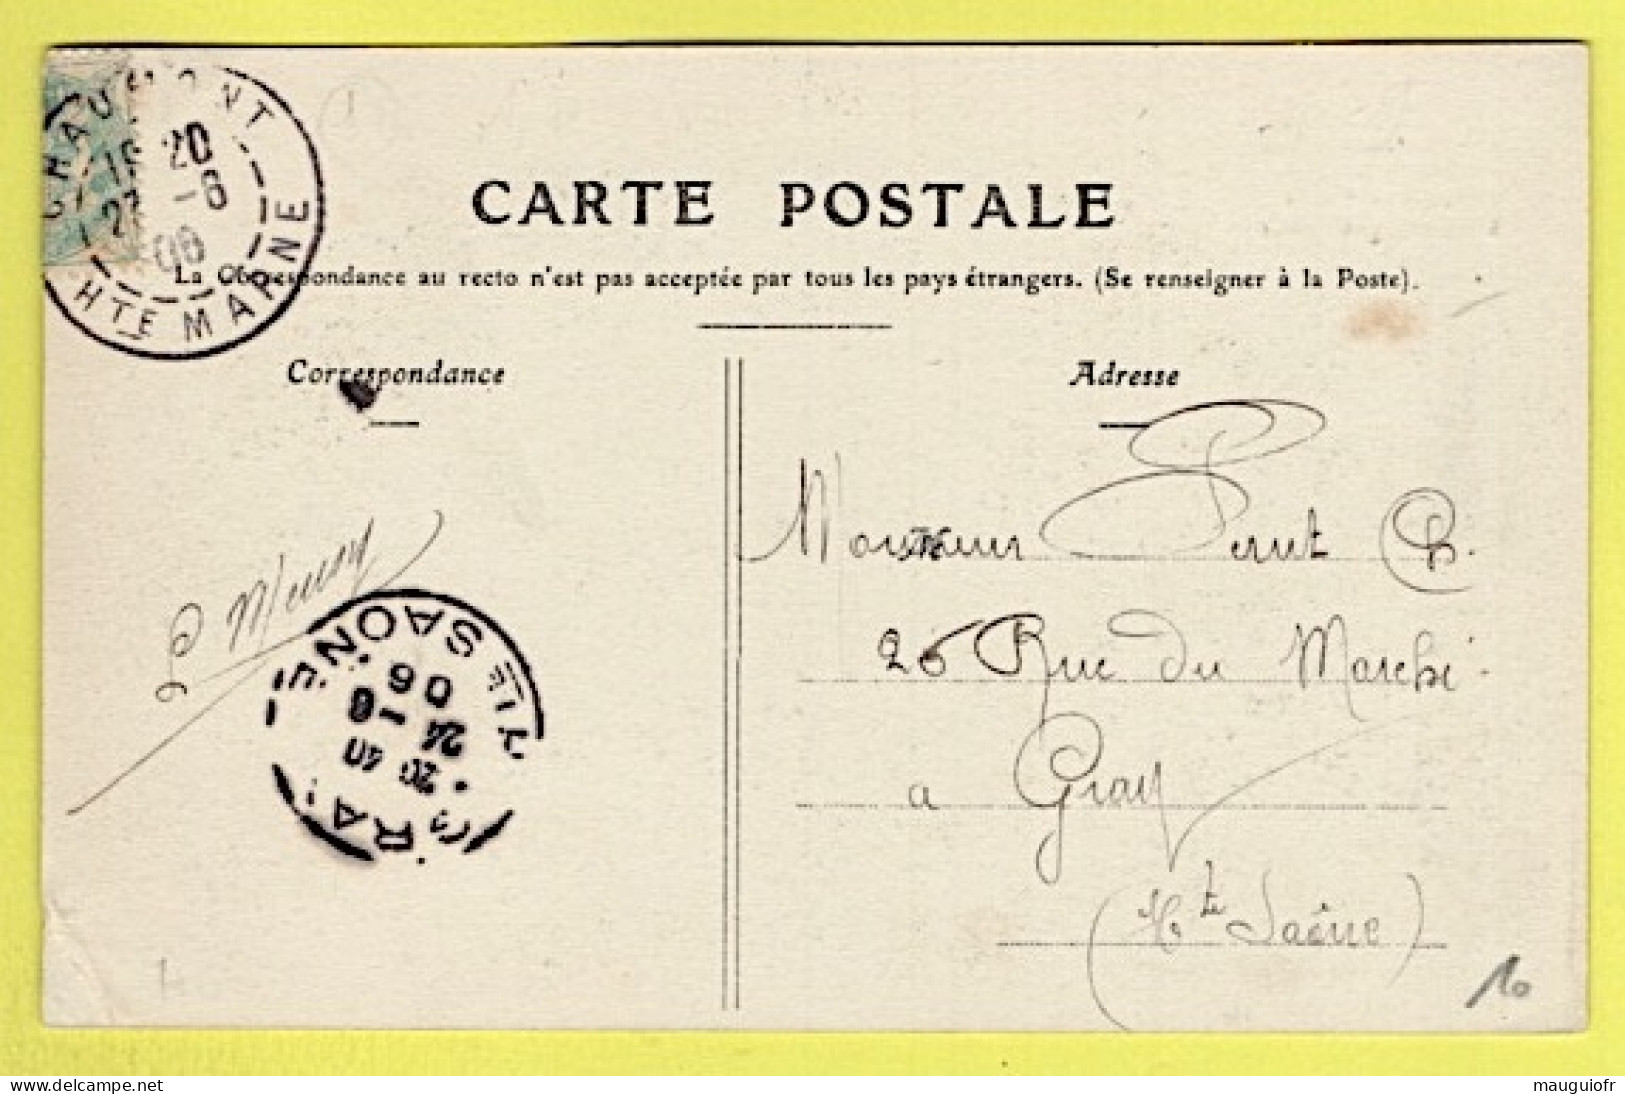 CHAUMONT
20
-8
06
HTE MARNE
CARTE POSTALE
La Correspondance au recto n'est pas acceptée par tous les pays étrangers. (Se renseigner à la Poste).
Correspondance
Adresse
Monsieur Ch.
26 Rue du Marché
a Gray
(Hte Saône)
GRAY
20 40
24 -8
06
HTE SAONE
10
mauguiofr